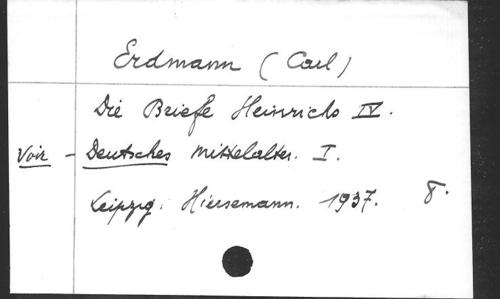 Erdmann (Carl)
Die Briefe Heinrichs IV.
Voir - Deutsches Mittelalter. I.
Leipzig. Hiersemann. 1937. 8.